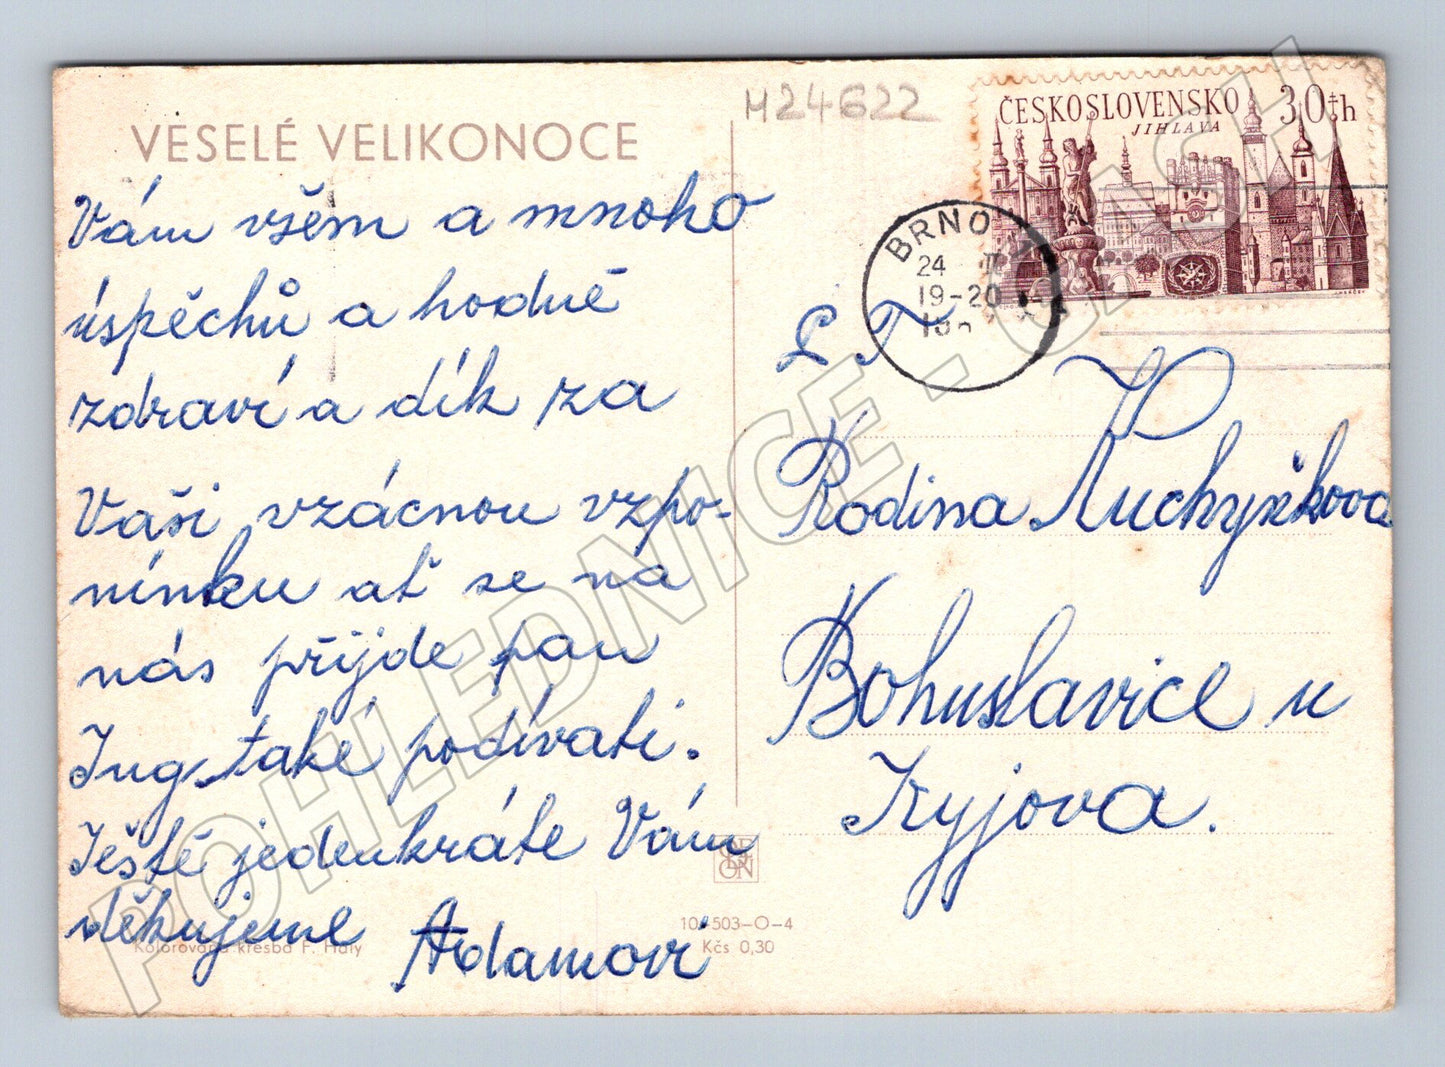 VESELÉ VELIKONOCE
Vám všem a mnoho
úspěchů a hodně
zdraví a dík za
Vaši vzácnou vzpo-
mínku ať se na
nás přijde pan
Ing. také podívati.
Ještě jedenkráte Vám
děkujeme Adamovi
Kolorovaná kresba F. Haly
M24622
ČESKOSLOVENSKO 30th
JIHLAVA
BRNO
24 II
19-20
L T
Rodina Kuchyňkova
Bohuslavice u
Kyjova.
ORBIS
503-O-4
Kčs 0,30
POHLEDNICE - CASH